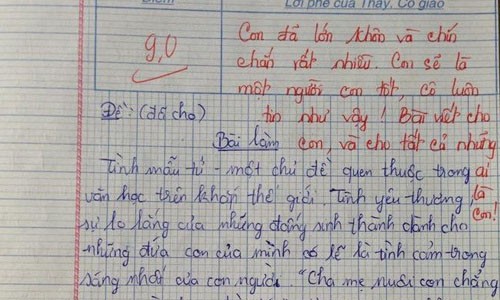 Điểm
Lời phê của Thầy, Cô giáo
9,0
Con đã lớn khôn và chín
chắn rất nhiều. Con sẽ là
một người con tốt, cô luôn
tin như vậy! Bài viết cho
con, và cho tất cả những
ai
là
con!
Đề: (đề cho)
Bài làm
Tình mẫu tử - một chủ đề quen thuộc trong
văn học trên khắp thế giới. Tình yêu thương,
sự lo lắng của những đấng sinh thành dành cho
những đứa con của mình có lẽ là tình cảm trong
sáng nhất của con người. "Cha mẹ nuôi con chẳng